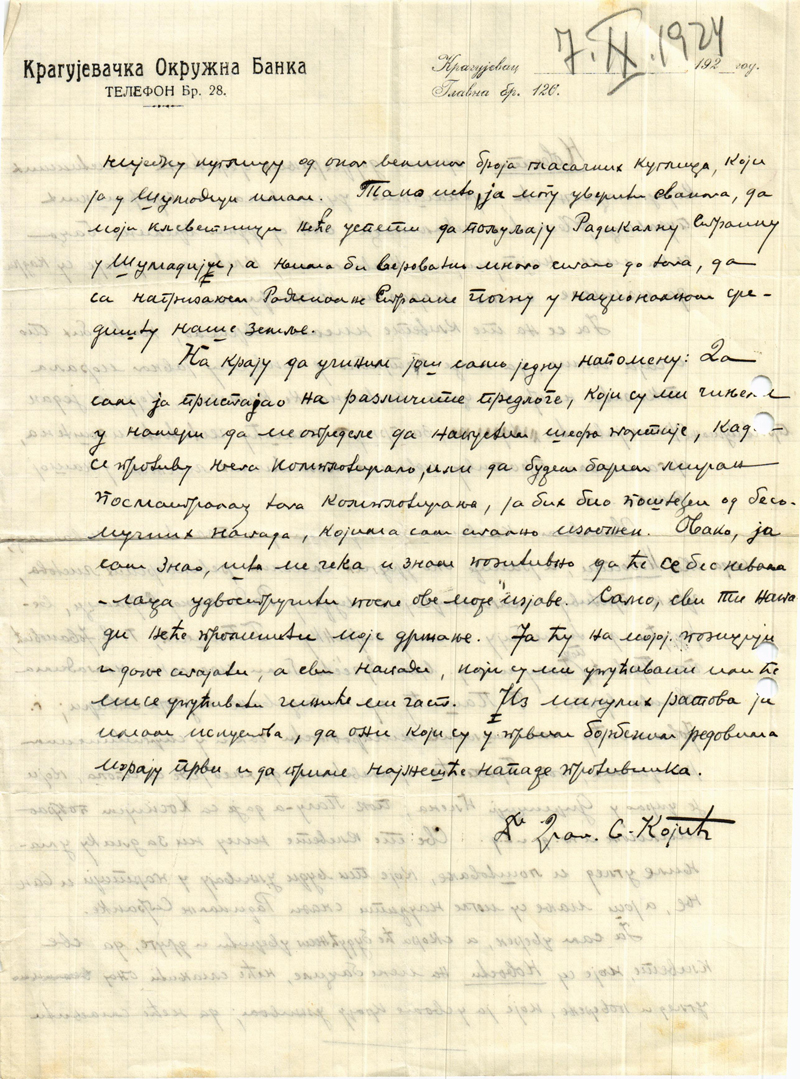 7. IX. 1924
Крагујевачка Окружна Банка
ТЕЛЕФОН Бр. 28.
Крагујевац 192 год.
Главна бр. 126.
куглицу од оног великог броја гласачких куглица, који
ја у Шумадији имам. Тако исто, ја могу уверити свакога, да
моји клеветници неће успети да пољуљају Радикалну Странку
у Шумадији, а њима би вероватно много стало до тога, да
са нагризањем Радикалне Странке почну у националном сре-
дишту наше земље.
На крају да учиним још само једну напомену: Да
сам ја пристајао на различите предлоге, који су ми чињени
у намери да ме определе да напустим шефа партије, кад
се противу њега комплотирало, или да будем барем миран
посматралац тога комплотирања, ја бих био поштеђен од бесо-
мучних напада, којима сам стално изложен. Овако, ја
сам знао, шта ме чека и знам позитивно да ће се бес
удвостручити после ове моје изјаве. Само, сви ти напа
ди неће променити моје држање. Ја ћу на мојој позицији
и даље стајати, а сви напади, који су ми упућивани или ће
ми се упућивати чиниће ми част. Из минулих ратова ја
имам искуства, да они који су у првим борбеним редовима
морају први и да приме најжешће нападе противника.
Др Драг. С. Којић